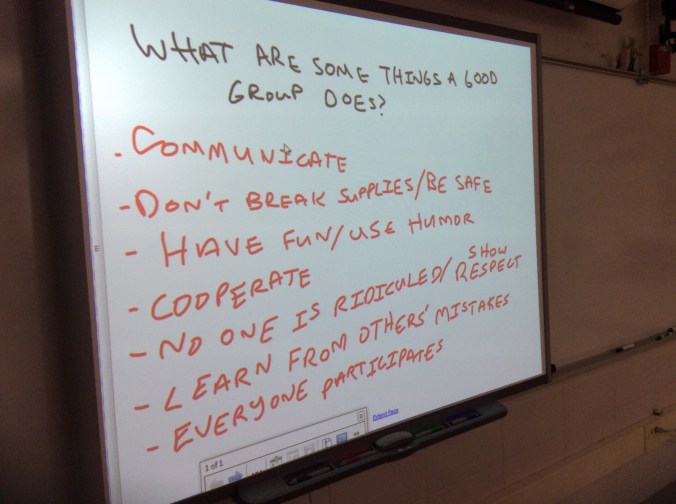 WHAT ARE SOME THINGS A GOOD
GROUP DOES?
. COMMUNICATE
- DON'T BREAK SUPPLIES/BE SAFE
- HAVE FUN/USE HUMOR
- COOPERATE
- NO ONE IS RIDICULED/SHOW RESPECT
- LEARN FROM OTHERS' MISTAKES
- EVERYONE PARTICIPATES
Extend Page
1 of 1